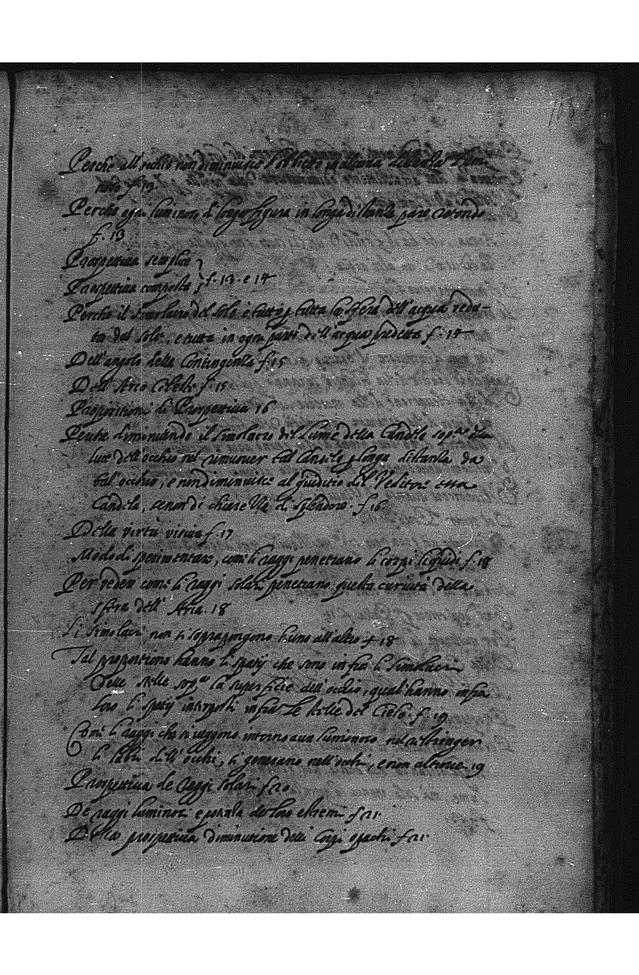 Perche all'occhio non diminuisce l'obbietto in alcuna distantia
f. 13
Perche ogni luminoso di longa figura in longa distantia pare rotondo
f. 13
Prospettiva semplice
Prospettiva composta f. 13. e 14
Perche il simolacro del sole è tutto p tutta la sfera dell'acqua vedu-
ta dal sole, e tutto in ogni parte dell'acqua predetta f. 14
Dell'angolo della Contingenza f. 15
Dell'Arco Celeste f. 15
Propositioni di Prospettiva 16
Perche diminuendo il simolacro del lume della Candela sop.a
luce dell'occhio nel rimuover tal Candela p longa distantia da
tal occhio, e non diminuisce al giuditio del Veditore essa
Candela, se non di chiarezza di splendore. f. 16
Della virtù visiva f. 17
Modo di sperimentare, come li raggi penetrano li corpi liquidi f. 18
Per veder come li raggi solari penetrano questa curvità della
sfera dell'Aria. 18
Li Simolacri non si sopragongono l'uno all'altro f. 18
Tal proportione hanno li spatij che sono infra li Simolacri
delle stelle sop.a la superficie dell'occhio, qual hanno infra
loro li spatij interposti infra le stelle del Cielo. f. 19
Come li raggi che si veggono intorno a un luminoso nel astringer
li labri delli occhi, si generano nell'occhi, e non altrove 19
Prospettiva de raggi solari f. 20
De raggi luminosi e potentia de loro estremi f. 21
Della prospettiva diminutione delli Corpi opachi f. 21